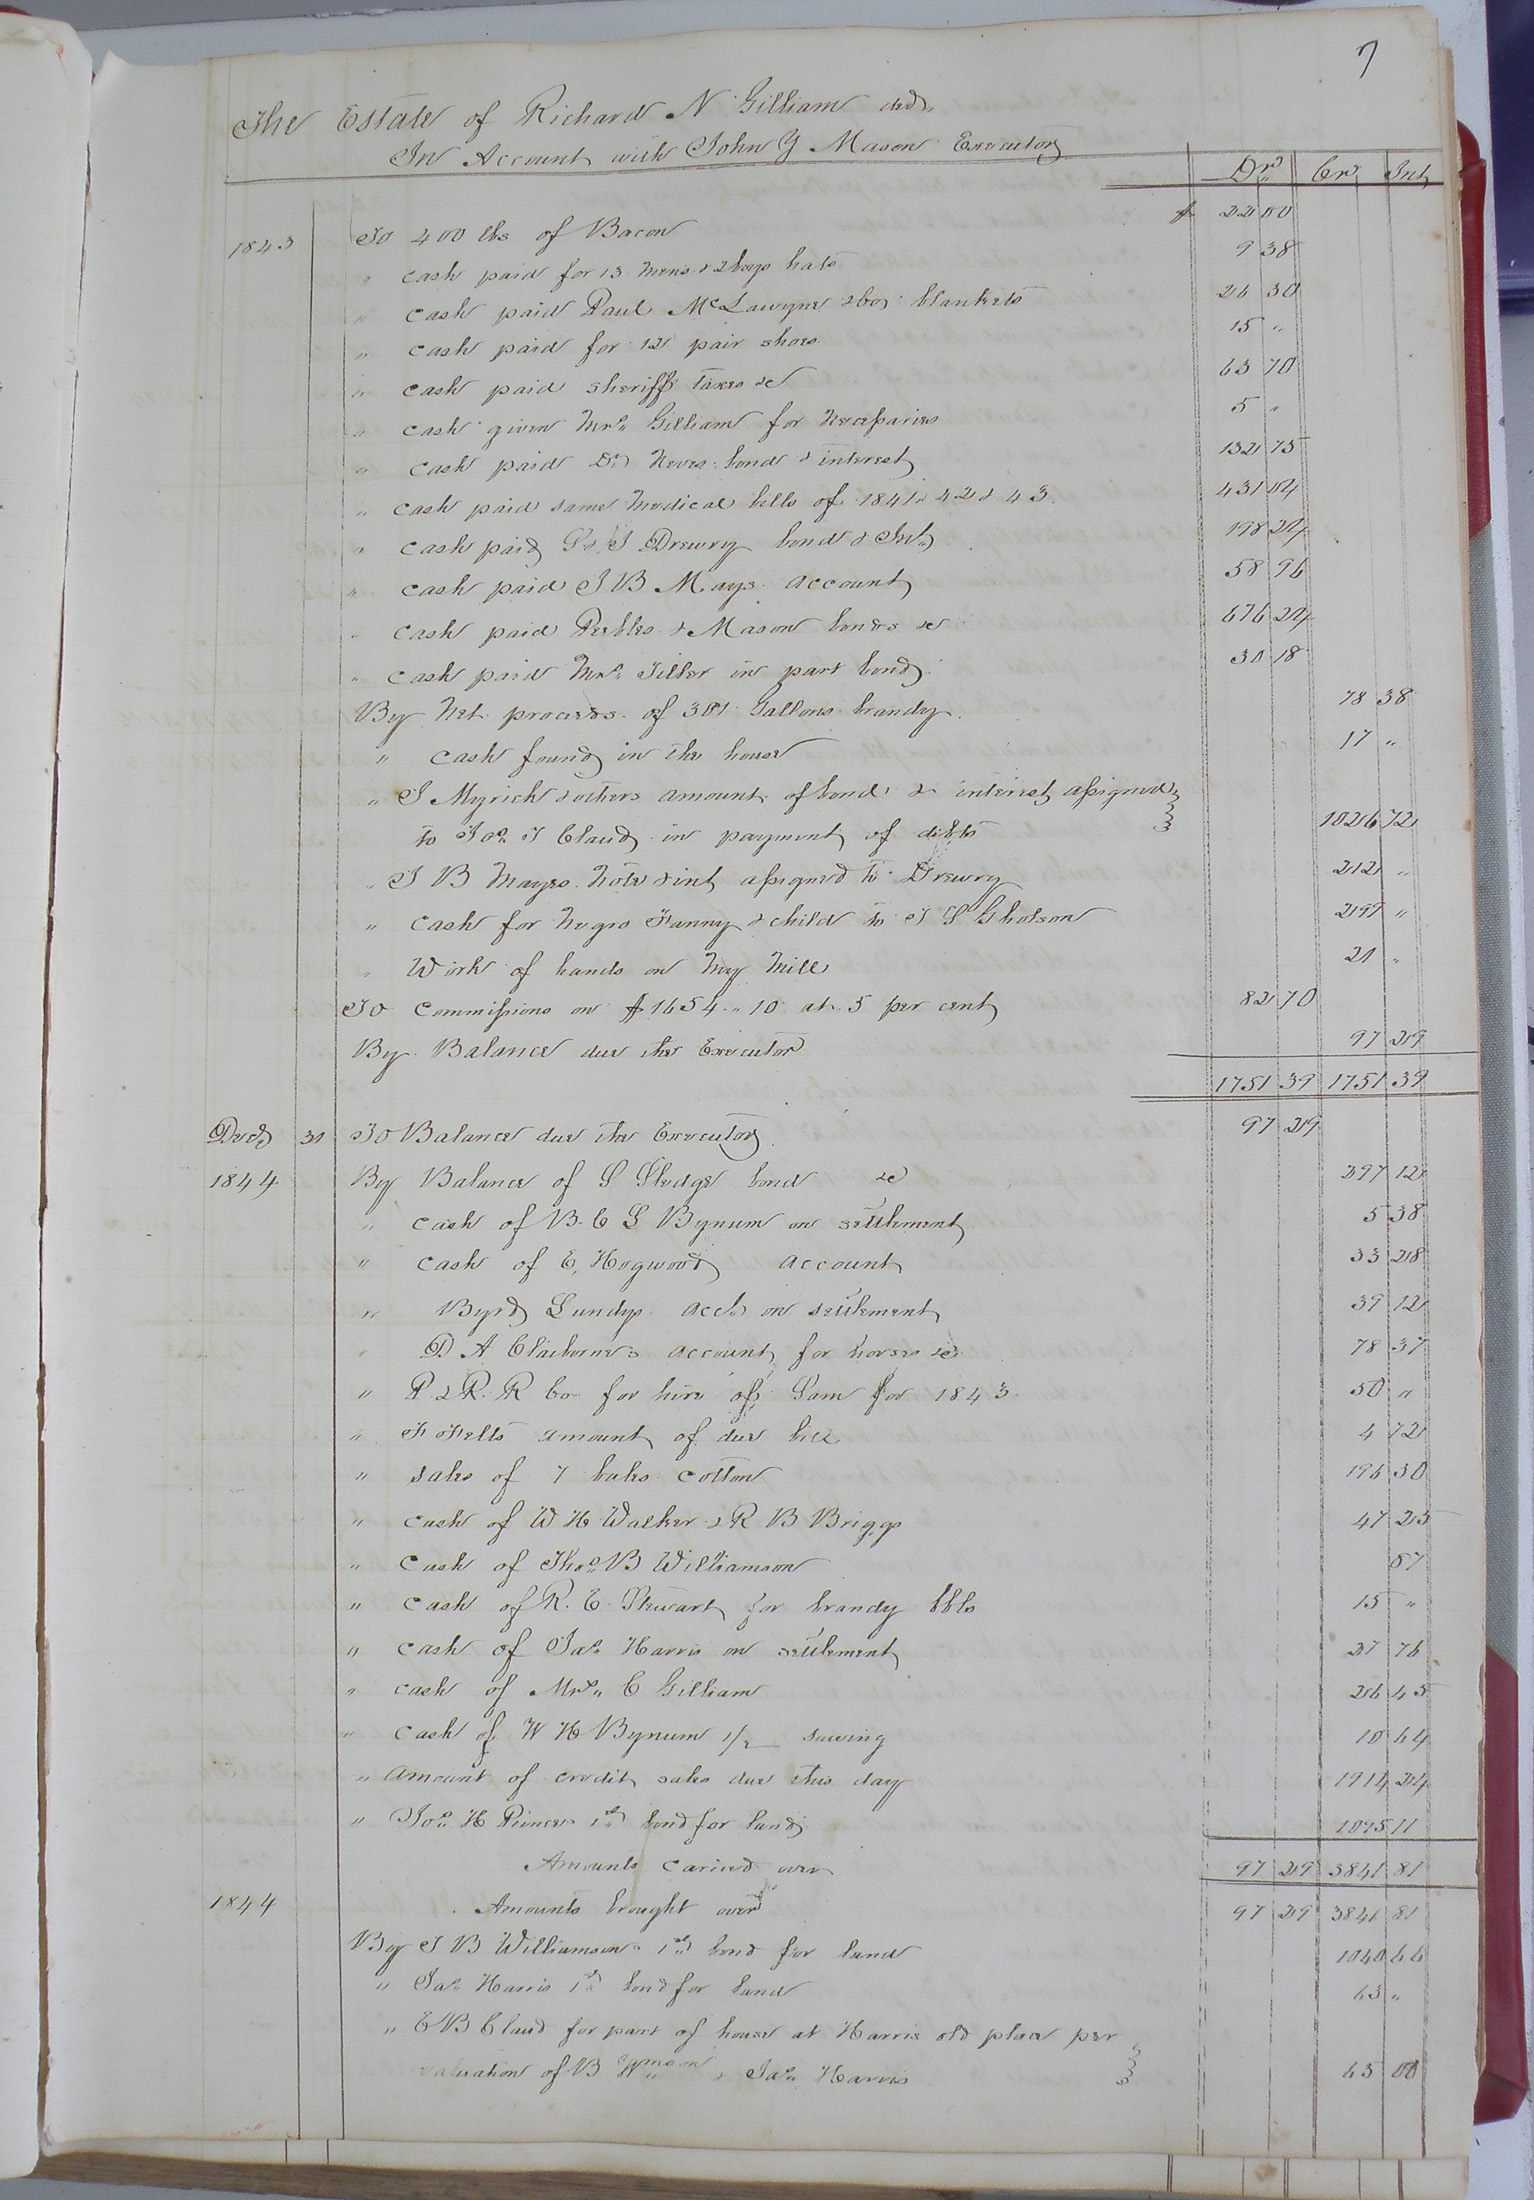 7
The Estate of Richard N Gilliam decd
In Account with John Y Mason Executor
Dr Cr Int
1843 To 400 lbs of Bacon $ 22 00
" cash paid for 13 mens & 2 boys hats 9 38
" cash paid Paul McLawyne & bro blankets 26 30
" cash paid for 12 pair shoes 15 "
" cash paid sheriff taxes &c 63 70
" cash given Mrs Gilliam for Necessaries 5 "
" cash paid Dr Neves bond & interest 132 75
" cash paid same Medical bills of 1841 & 42 & 43 431 04
" cash paid P & J Drewry bond & Int 198 24
" cash paid J B Mays account 58 96
" cash paid Peebles & Mason bonds &c 676 24
" cash paid Mrs Tiller in part bond 30 18
By Net proceeds of 301 Gallons brandy 78 38
" cash found in the house 17 "
" J Myrick & others amount of bond & interest assigned
to Jos. J Claud in payment of debts 1026 72
" J B Mayes Note & int assigned to Drewry 212 "
" cash for Negro Fanny & child to J S Gholson 299 "
" Work of hands on my Mill 21 "
To Commissions on $1654 " 10 at 5 per cent 82 70
By Balance due the Executor 97 29
1751 39 1751 39
Decd 31 To Balance due the Executor 97 29
1844 By Balance of S Sledge bond &c 297 12
" cash of B. C S Bynum on settlement 5 38
" cash of E, Hogwood account 33 28
" Byrd Lundys acct. on settlement 39 12
" D A Claiborne's account for horses &c 78 37
" P. & R. R Co for hire of Sam for 1843 50 "
" F Felts amount of due bill 4 72
" sales of 7 bales cotton 196 30
" cash of W H Walker & R B Briggs 47 25
" cash of Thos. B Williamson 87
" cash of R. E. Stewart for brandy bbls 15 "
" cash of Jas. Harris on settlement 27 76
" cash of Mrs. C Gilliam 26 45
" cash of W H Bynum 1/2 sawing 10 64
" Amount of credit sales due this day 1914 24
" Jos. H Princes 1st bond for land 1075 11
Amounts carried over 97 29 3841 81
1844 Amounts brought over 97 29 3841 81
By J B Williamson 1st bond for land 1040 66
" Jas. Harris 1st bond for land 63 "
" E B Claud for part of house at Harris old place per
valuation of B Wmson & Jas. Harris 65 00